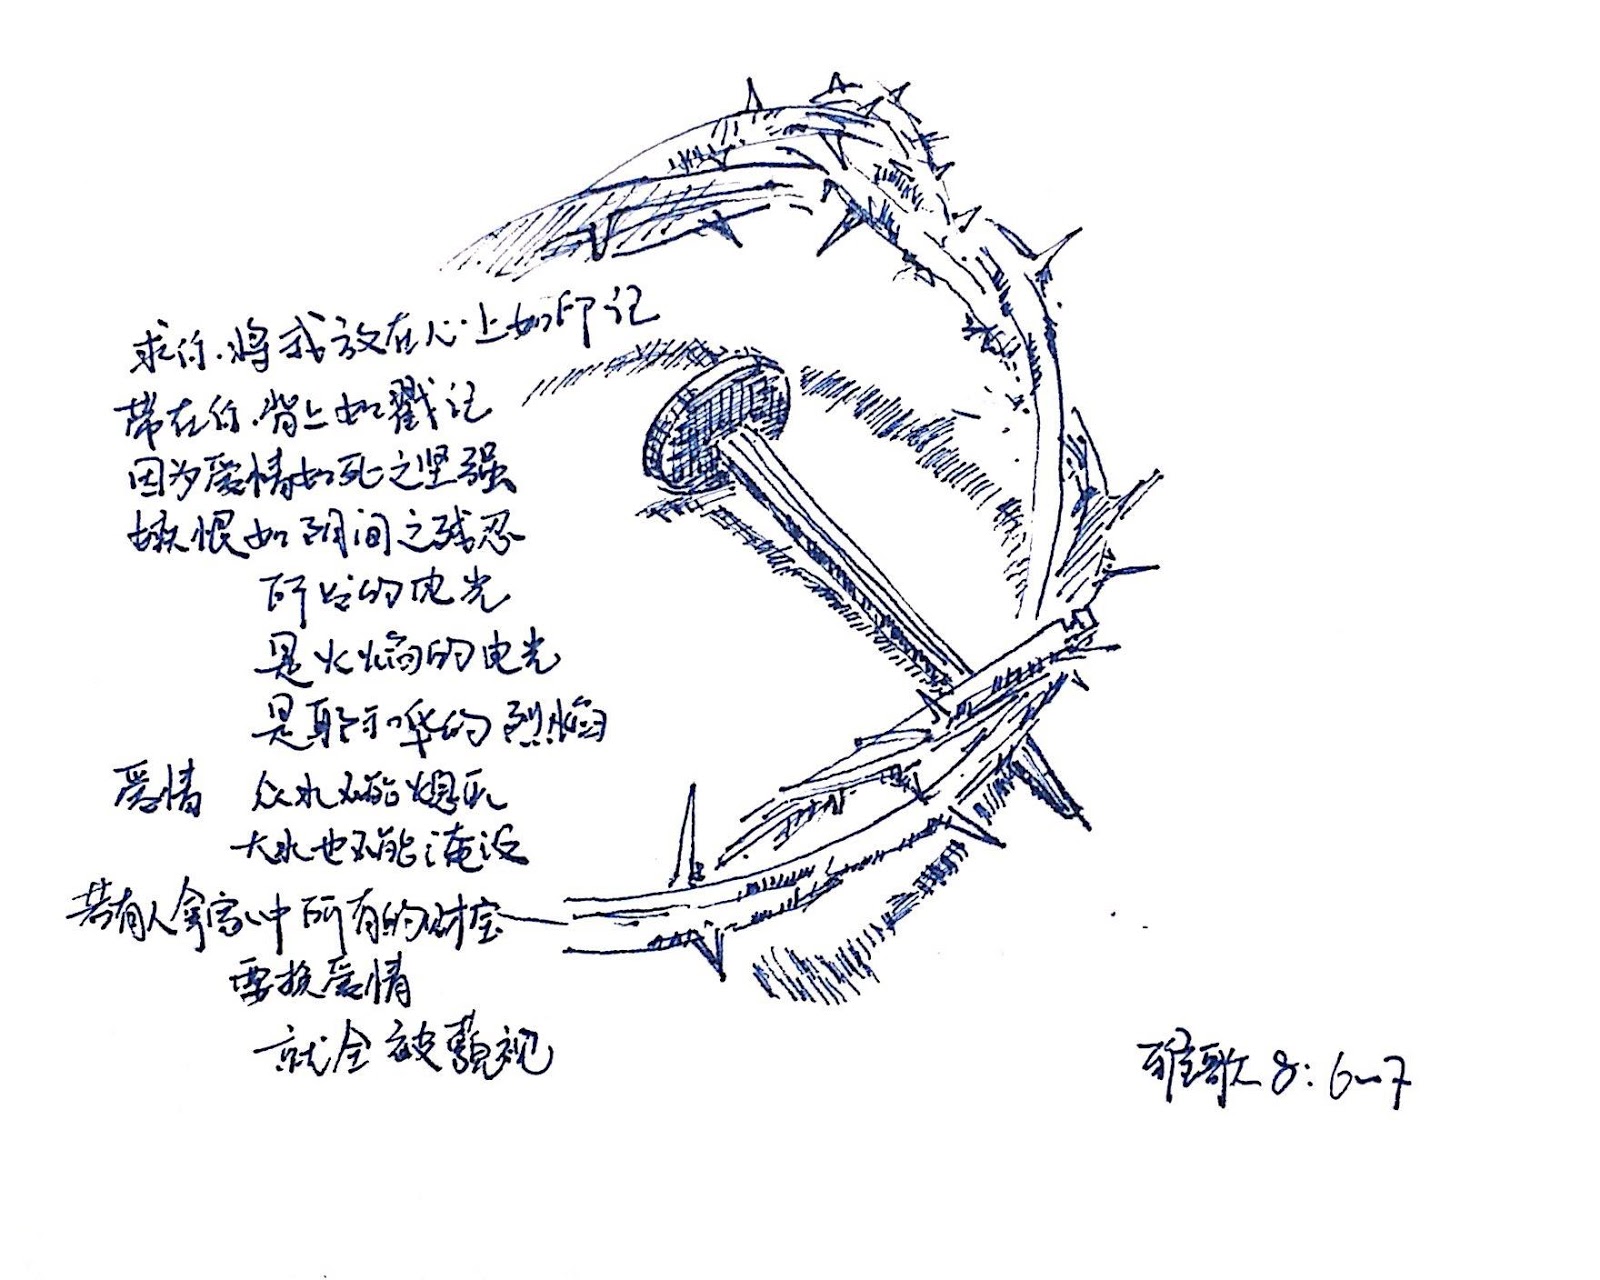 求你将我放在心上如印记
带在你背上如戳记
因为爱情如死之坚强
嫉恨如阴间之残忍
所发的电光
是火焰的电光
是耶和华的烈焰
爱情 众水不能熄灭
大水也不能淹没
若有人拿家中所有的财宝
要换爱情
就全被藐视
雅歌 8:6-7